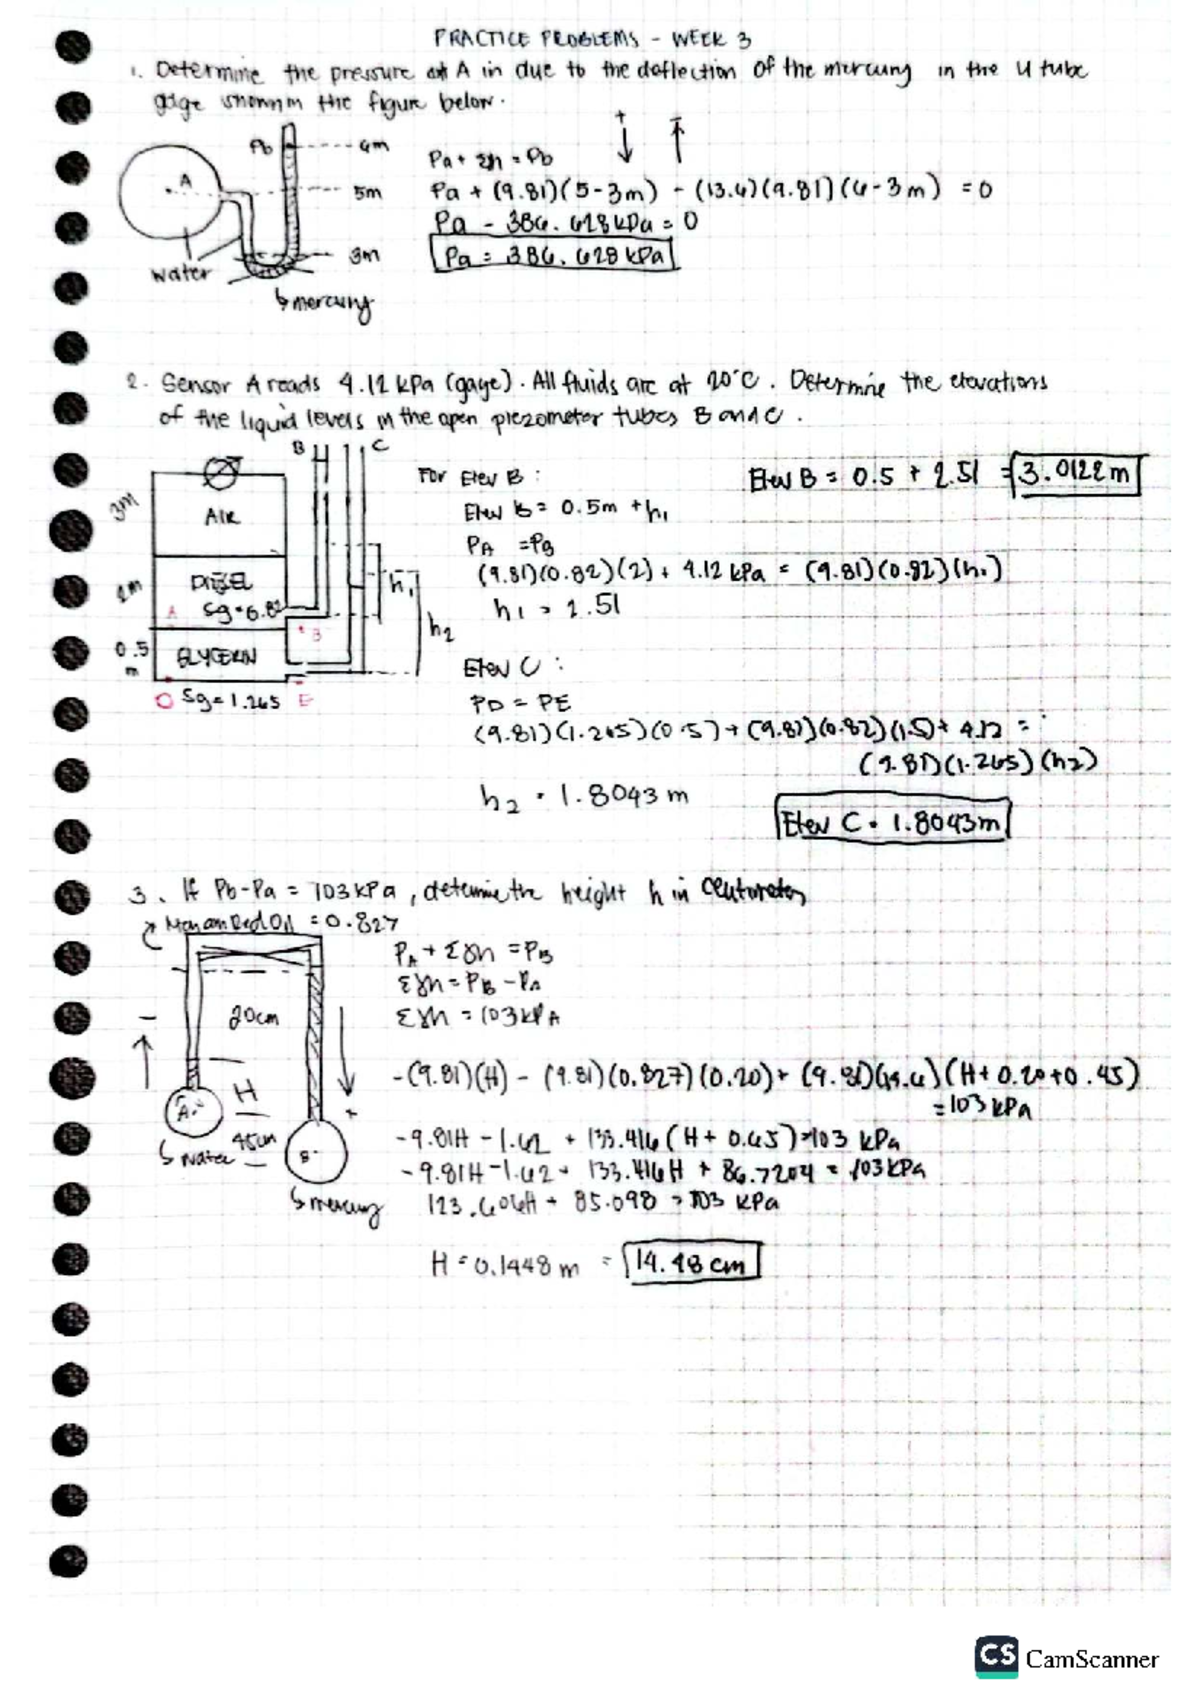 PRACTICE PROBLEMS - WEEK 3
1. Determine the pressure at A in due to the deflection of the mercury in the U tube
gage shown in the figure below.
Pb
4m
A
5m
3m
water
↳ mercury
+ ↓ - ↑
Pa + Σγh = Pb
Pa + (9.81)(5-3m) - (13.6)(9.81)(6-3m) = 0
Pa - 386.628 kPa = 0
Pa = 386.628 kPa
2. Sensor A reads 4.12 kPa (gage). All fluids are at 20°C. Determine the elevations
of the liquid levels in the open piezometer tubes B and C.
B
C
3m
AIR
2m
DIESEL
A Sg=0.82
B
0.5
m
GLYCERIN
D Sg=1.265 E
h1
h2
For Elev B:
Elev B = 0.5m + h1
PA = PB
(9.81)(0.82)(2) + 4.12 kPa = (9.81)(0.82)(h1)
h1 = 2.51
Elev B = 0.5 + 2.51 = 3.0122m
Elev C:
PD = PE
(9.81)(1.265)(0.5) + (9.81)(0.82)(1.5) + 4.12 =
(9.81)(1.265)(h2)
h2 = 1.8043 m
Elev C = 1.8043m
3. If Pb-Pa = 103 kPa, determine the height h in centimeters
Red Oil = 0.827
20cm
-
+
A
H
45cm
↳ water
B
↳ mercury
PA + Σγh = PB
Σγh = PB - PA
Σγh = 103 kPA
-(9.81)(H) - (9.81)(0.827)(0.20) + (9.81)(13.6)(H + 0.20 + 0.45)
= 103 kPa
-9.81H - 1.62 + 133.416(H + 0.65) = 103 kPa
-9.81H - 1.62 + 133.416H + 86.7204 = 103 kPa
123.606H + 85.098 = 103 kPa
H = 0.1448 m = 14.48 cm
CS CamScanner